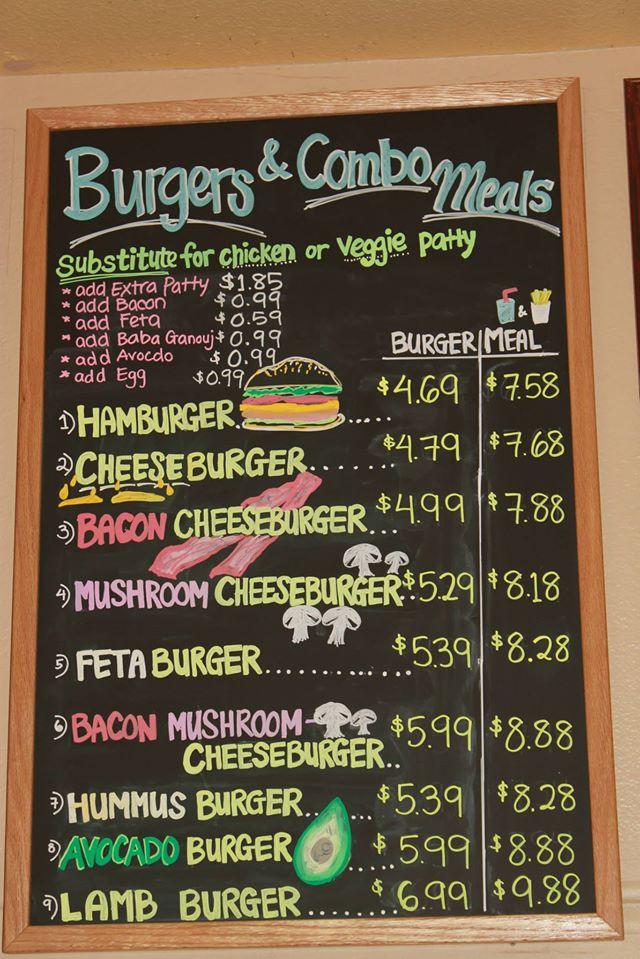 Burgers & Combo Meals
Substitute for chicken or veggie patty
* add Extra Patty $1.85
* add Bacon $0.99
* add Feta $0.59
* add Baba Ganouj $0.99
* add Avocdo $0.99
* add Egg $0.99
&
BURGER MEAL
1) HAMBURGER....... $4.69 $7.58
2) CHEESEBURGER...... $4.79 $7.68
3) BACON CHEESEBURGER... $4.99 $7.88
4) MUSHROOM CHEESEBURGER.. $5.29 $8.18
5) FETA BURGER............. $5.39 $8.28
6) BACON MUSHROOM-
CHEESEBURGER.. $5.99 $8.88
7) HUMMUS BURGER....... $5.39 $8.28
8) AVOCADO BURGER ..... $5.99 $8.88
9) LAMB BURGER........ $6.99 $9.88